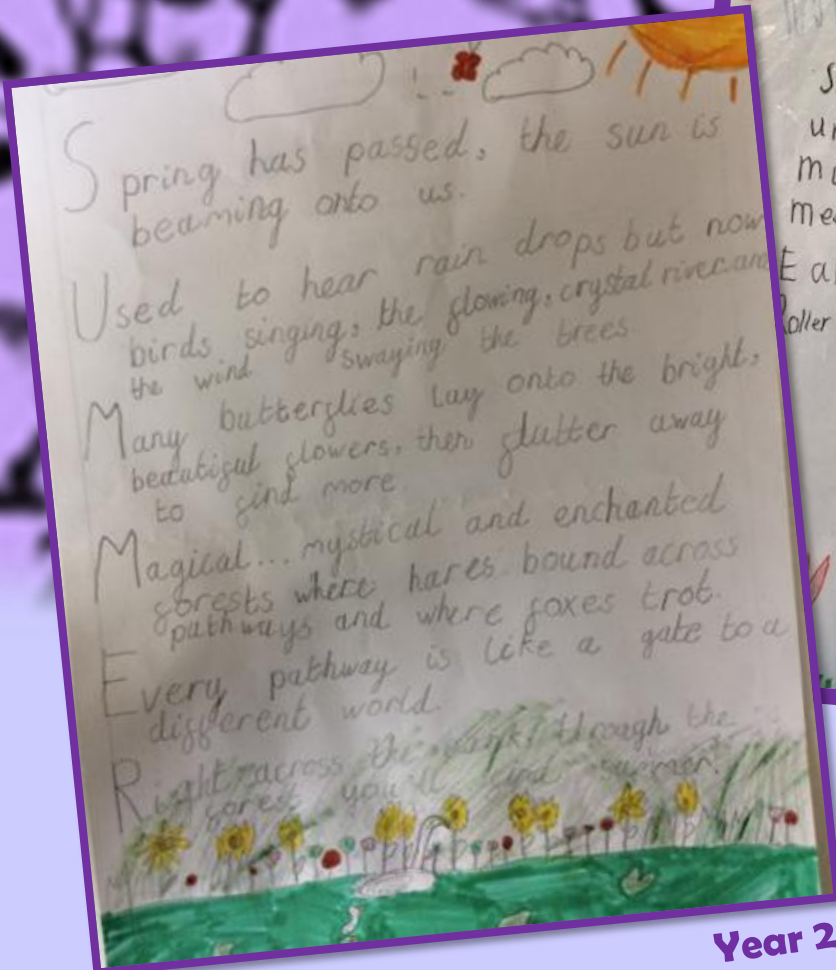 Spring has passed, the sun is
beaming onto us.
Used to hear rain drops but now
birds singing, the flowing, crystal river and
the wind swaying the trees
Many butterflies lay onto the bright,
beautiful flowers, then flutter away
to find more
Magical... mystical and enchanted
forests where hares bound across
pathways and where foxes trot.
Every pathway is like a gate to a
different world.
Right across the through the
forest you'll find summer!
Year 2
S
me
Ea
Roller